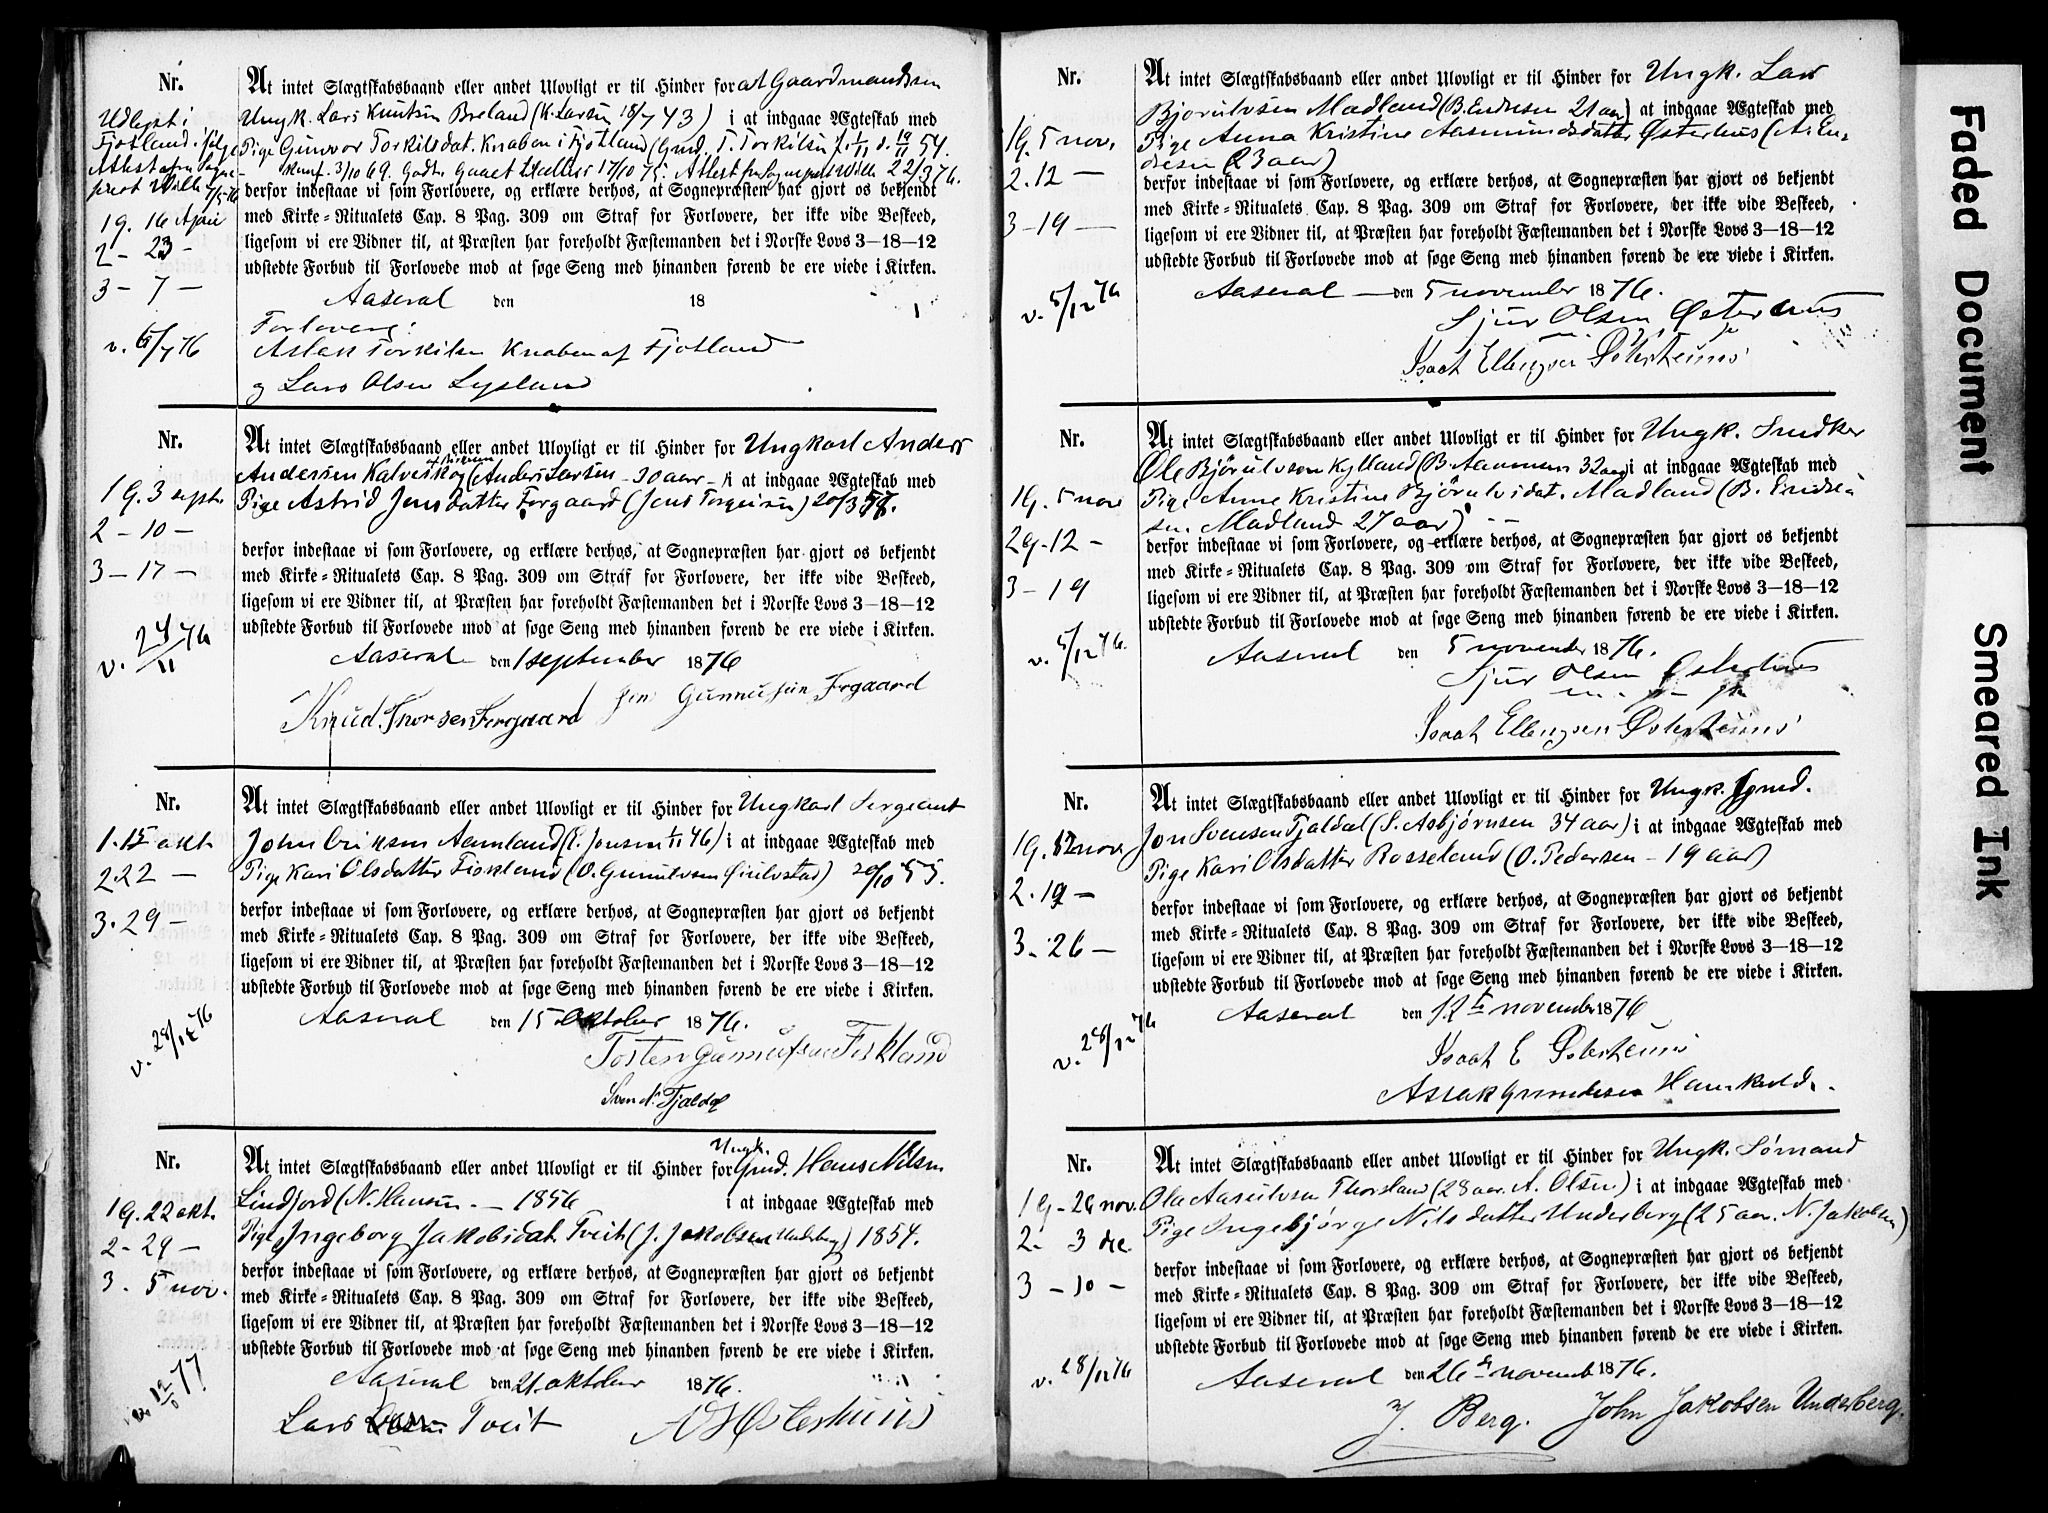 Nr.
At intet Slægtskabsbaand eller andet Ulovligt er til Hinder for at Gaardmandssøn
Udlyst i
Ungk. Lars Knutsen Breland (K. Larsen 18/7 43) i at indgaae Ægteskab med
Fjotland ifølge
Pige Gunvor Torkilsdat. Knaben i Fjotland (Gmd. T. Torkilsen f. 1/11 d. 19/11 54.
Attest fra Sogne-
konf. 3/10 69. Godtgj. 17/10 75. Attest fra Sognepræst Wille 22/3 76.
præst Wille 7/5 76
derfor indestaae vi som Forlovere, og erklære derhos, at Sognepræsten har gjort os bekjendt
19. 16 April
med Kirke-Ritualets Cap. 8 Pag. 309 om Straf for Forlovere, der ikke vide Beskeed,
2 - 23 -
ligesom vi ere Vidner til, at Præsten har foreholdt Fæstemanden det i Norske Lovs 3-18-12
udstedte Forbud til Forlovede mod at søge Seng med hinanden førend de ere viede i Kirken.
3 - 7 -
Aaseral den 18
Forlovere:
v. 6/7 76
Aslak Torkilsen Knaben af Fjotland
og Lars Olsen Lysland
Nr.
At intet Slægtskabsbaand eller andet Ulovligt er til Hinder for Ungkarl Anders
Andersen Kalveskog (Anders Larsen - 30 aar - i at indgaae Ægteskab med
19. 3 septr.
Pige Astrid Jensdatter Forgaard (Jens Torgeirsen) 20/3 57.
2 - 10 -
derfor indestaae vi som Forlovere, og erklære derhos, at Sognepræsten har gjort os bekjendt
3 - 17 -
med Kirke-Ritualets Cap. 8 Pag. 309 om Straf for Forlovere, der ikke vide Beskeed,
ligesom vi ere Vidner til, at Præsten har foreholdt Fæstemanden det i Norske Lovs 3-18-12
udstedte Forbud til Forlovede mod at søge Seng med hinanden førend de ere viede i Kirken.
v. 24/11 76
Aaseral den 1 september 1876
Knud Thorsen Forgaard Jens Gunnufsen Forgaard
Nr.
At intet Slægtskabsbaand eller andet Ulovligt er til Hinder for Ungkarl Sergeant
1. 15 okt.
John Eriksen Aamland (E. Jonsen 1/11 46) i at indgaae Ægteskab med
2 22 -
Pige Kari Olsdatter Fiskland (O. Gunulvsen Øiulvstad) 20/10 55.
3. 29 -
derfor indestaae vi som Forlovere, og erklære derhos, at Sognepræsten har gjort os bekjendt
med Kirke-Ritualets Cap. 8 Pag. 309 om Straf for Forlovere, der ikke vide Beskeed,
ligesom vi ere Vidner til, at Præsten har foreholdt Fæstemanden det i Norske Lovs 3-18-12
udstedte Forbud til Forlovede mod at søge Seng med hinanden førend de ere viede i Kirken.
v. 28/12 76
Aaseral den 15 Oktober 1876.
Torsten Gunnufsen Fiskland
Sven N. Fjaldal
Nr.
At intet Slægtskabsbaand eller andet Ulovligt er til Hinder for Ungk. Gmd. Hans Nilsen
Lindjord (N. Hansen - 1856 i at indgaae Ægteskab med
19. 22 okt.
Pige Ingeborg Jakobsdat. Tveit (J. Jakobsen Underberg) 1854.
2 - 29 -
derfor indestaae vi som Forlovere, og erklære derhos, at Sognepræsten har gjort os bekjendt
3. 5 nov.
med Kirke-Ritualets Cap. 8 Pag. 309 om Straf for Forlovere, der ikke vide Beskeed,
ligesom vi ere Vidner til, at Præsten har foreholdt Fæstemanden det i Norske Lovs 3-18-12
udstedte Forbud til Forlovede mod at søge Seng med hinanden førend de ere viede i Kirken.
Aaseral den 21 oktober 1876.
Lars Tveit N H Østerhuus
Nr.
At intet Slægtskabsbaand eller andet Ulovligt er til Hinder for Ungk. Lars
Bjorulvsen Madland (B. Endresen 21 aar) i at indgaae Ægteskab med
19. 5 nov.
Pige Anna Kristine Aasmundsdatter Østerhus (A. En-
dresen (23 aar)
2. 12 -
derfor indestaae vi som Forlovere, og erklære derhos, at Sognepræsten har gjort os bekjendt
med Kirke-Ritualets Cap. 8 Pag. 309 om Straf for Forlovere, der ikke vide Beskeed,
3 - 19 -
ligesom vi ere Vidner til, at Præsten har foreholdt Fæstemanden det i Norske Lovs 3-18-12
udstedte Forbud til Forlovede mod at søge Seng med hinanden førend de ere viede i Kirken.
v. 5/12 76
Aaseral den 5 november 1876.
Sjur Olsen Østerhus
Isaak Ellengsen Østerhuus
Nr.
At intet Slægtskabsbaand eller andet Ulovligt er til Hinder for Ungk. Snedker
Ole Bjørulvsen Kylland (B. Aanensen 32 aar) i at indgaae Ægteskab med
19. 5 nov
Pige Anne Kristine Bjørulvsdat. Madland (B. Endre-
sen Madland 27 aar)
29 - 12 -
derfor indestaae vi som Forlovere, og erklære derhos, at Sognepræsten har gjort os bekjendt
med Kirke-Ritualets Cap. 8 Pag. 309 om Straf for Forlovere, der ikke vide Beskeed,
3 - 19
ligesom vi ere Vidner til, at Præsten har foreholdt Fæstemanden det i Norske Lovs 3-18-12
udstedte Forbud til Forlovede mod at søge Seng med hinanden førend de ere viede i Kirken.
v. 5/12 76.
Aaseral den 5 november 1876.
Sjur Olsen Østerhus
Isaak Ellengsen Østerhuus
Nr.
At intet Slægtskabsbaand eller andet Ulovligt er til Hinder for Ungk. Gmd.
19. 12 nov
Jon Svensen Fjaldal (S. Asbjørnsen 34 aar) i at indgaae Ægteskab med
Pige Kari Olsdatter Rosseland (O. Pedersen - 19 aar)
2. 19 -
derfor indestaae vi som Forlovere, og erklære derhos, at Sognepræsten har gjort os bekjendt
med Kirke-Ritualets Cap. 8 Pag. 309 om Straf for Forlovere, der ikke vide Beskeed,
3. 26 -
ligesom vi ere Vidner til, at Præsten har foreholdt Fæstemanden det i Norske Lovs 3-18-12
udstedte Forbud til Forlovede mod at søge Seng med hinanden førend de ere viede i Kirken.
v. 28/12 76
Aaseral den 12te november 1876
Isaak E Østerhuus
Aslak Gundersen Hamkold.
Nr.
At intet Slægtskabsbaand eller andet Ulovligt er til Hinder for Ungk. Sømand
19 - 26 nov.
Ola Aasulvsen Thorsland (28 aar. A. Olsen) i at indgaae Ægteskab med
Pige Ingebjørg Nilsdatter Underberg (25 aar. N. Jakobsen)
2. 3 dec.
derfor indestaae vi som Forlovere, og erklære derhos, at Sognepræsten har gjort os bekjendt
3 - 10 -
med Kirke-Ritualets Cap. 8 Pag. 309 om Straf for Forlovere, der ikke vide Beskeed,
ligesom vi ere Vidner til, at Præsten har foreholdt Fæstemanden det i Norske Lovs 3-18-12
udstedte Forbud til Forlovede mod at søge Seng med hinanden førend de ere viede i Kirken.
v. 28/12 76
Aaseral den 26de novemb 1876.
J. Berg. John Jakobsen Underberg.
Faded Document
Smeared Ink